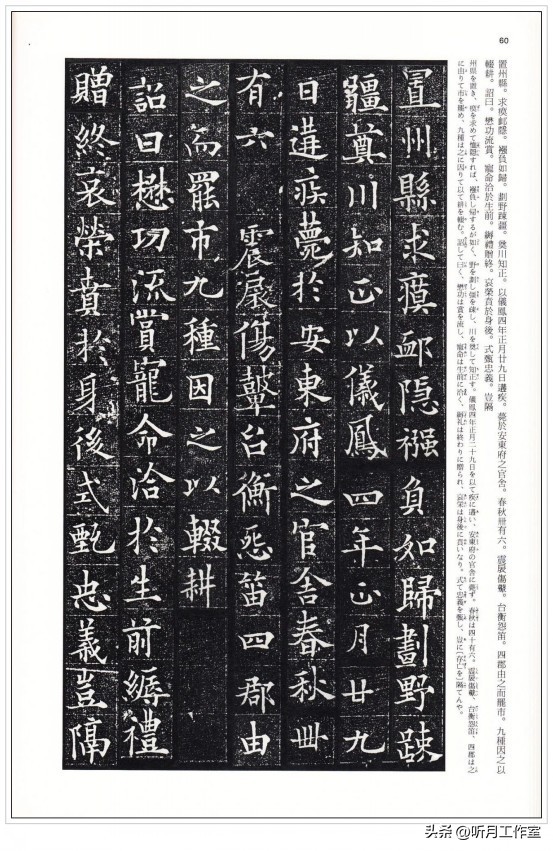 60
置州縣。求瘼䘏隱。襁負如歸。劃野疎疆。奠川知正。以儀鳳四年正月廿九日遘疾。薨於安東府之官舍。春秋卌有六。震扆傷鼙。台衡怨笛。四郡由之而罷市。九種因之以
輟耕。詔曰。懋功流賞。寵命洽於生前。縟禮贈終。哀榮賁於身後。式甄忠義。豈隔
州県を置き、瘼を求めて䘏隠すれば、襁負し帰するが如く、野を劃し疆を疎し、川を奠して知正す。儀鳳四年正月二十九日を以て疾に遘い、安東府の官舎に薨ず。春秋は四十有六。震扆傷鼙、台衡怨笛、四郡は之
に由りて市を罷め、九種は之に因りて以て耕を輟む。詔して曰く、懋功は賞を流し、寵命は生前に洽く、縟礼は終わりに贈られ、哀栄は身後に賁いなり。式て忠義を甄し、豈に(存亡を)隔てんや。
置州縣求瘼䘏隐襁負如歸劃野踈
疆奠川知正以儀鳳四年正月廿九
日遘疾薨於安東府之官舍春秋卌
有六 震扆傷鼙台衡怨笛四郡由
之而罷市九種因之以輟耕
詔曰懋功流賞寵命洽於生前縟禮
贈終哀榮賁於身後式甄忠義豈隔
头条 @听月工作室